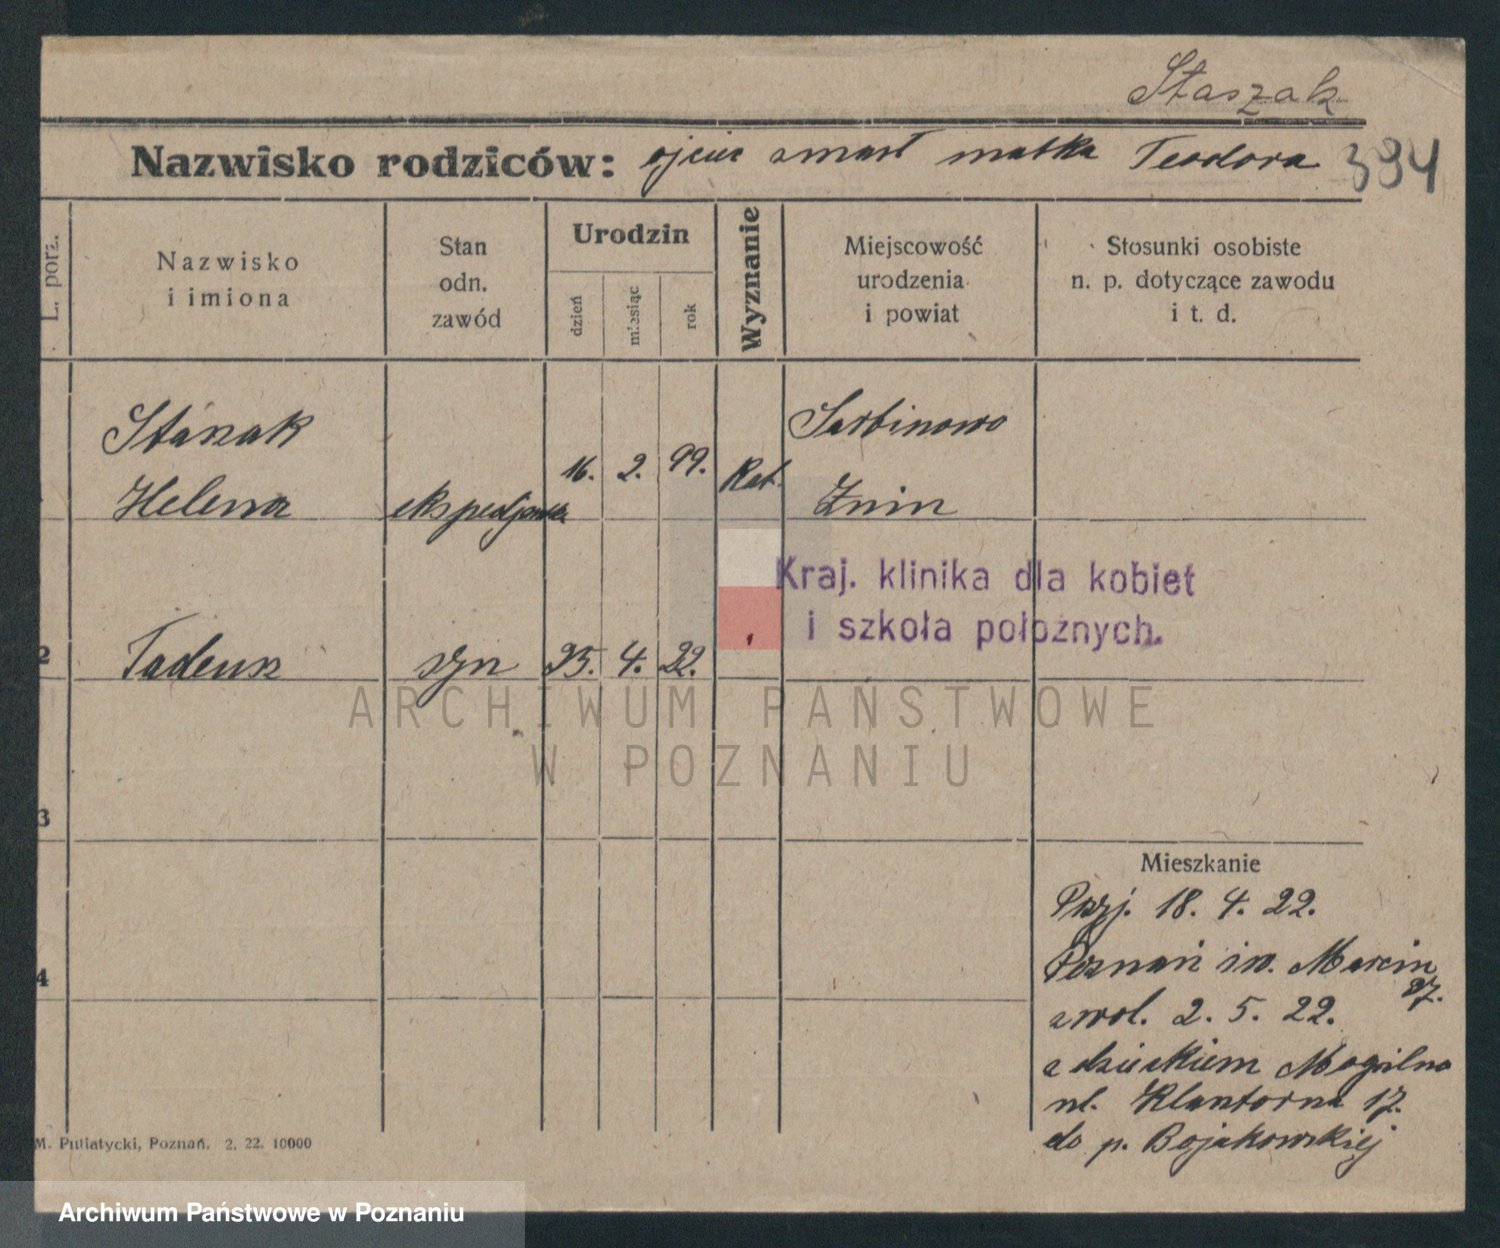 Staszak
Nazwisko rodziców: ojciec zmarł matka Teodora 394
L. porz.
Nazwisko
i imiona
Stan
odn.
zawód
Urodzin
dzień
miesiąc
rok
Wyznanie
Miejscowość
urodzenia
i powiat
Stosunki osobiste
n. p. dotyczące zawodu
i t. d.
Staszak
Helena
ekspedjentka
16. 2. 99.
Kat.
Sarbinowo
Żnin
Kraj. klinika dla kobiet
i szkoła położnych.
2 Tadeusz syn 25. 4. 22.
ARCHIWUM PAŃSTWOWE
W POZNANIU
3
4
Mieszkanie
Przj. 18. 4. 22.
Poznań św. Marcin
27.
zwol. 2. 5. 22.
z dzieckiem Mogilno
ul. Klasztorna 17.
do p. Bojakowskiej
M. Putiatycki, Poznań. 2. 22. 10000
Archiwum Państwowe w Poznaniu